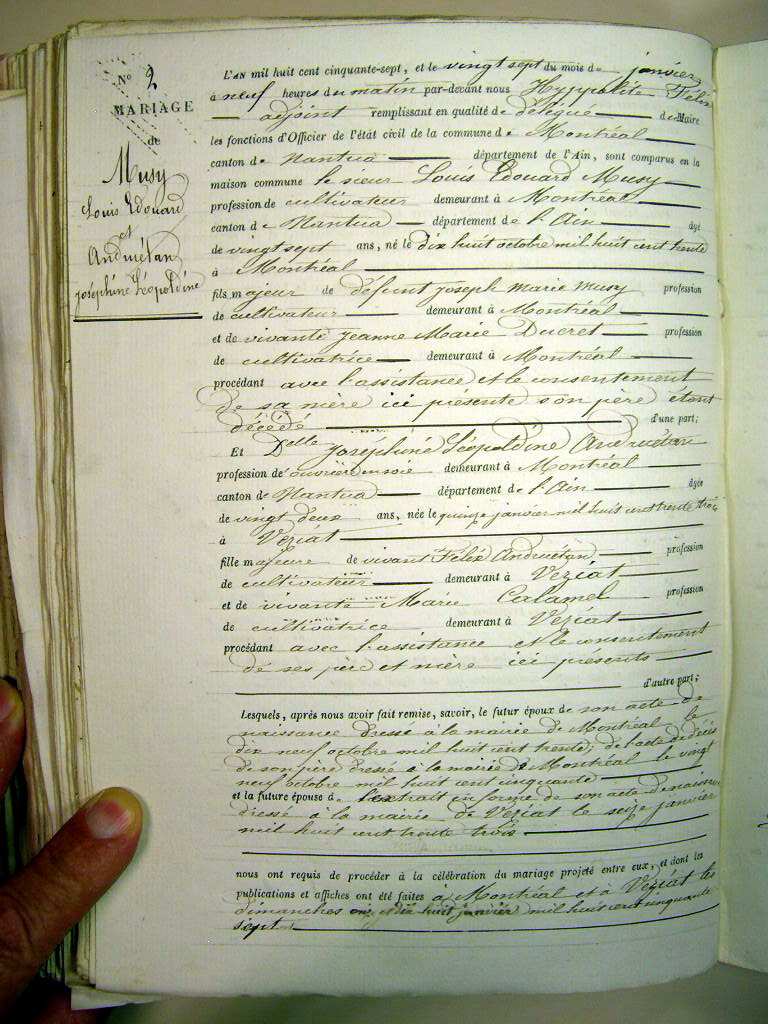 N° 2
MARIAGE
de
Musy
Louis Edouard
et
Andruétan
Joséphine Léopoldine
L'AN mil huit cent cinquante-sept, et le vingt sept du mois de janvier
à neuf heures du matin par-devant nous Hyppolite Félix
adjoint remplissant en qualité de délégué de Maire
les fonctions d'Officier de l'état civil de la commune de Montréal
canton de Nantua département de l'Ain, sont comparus en la
maison commune le sieur Louis Edouard Musy
profession de cultivateur demeurant à Montréal
canton de Nantua département de l'Ain âgé
de vingt sept ans, né le dix huit octobre mil huit cent trente
à Montréal
fils majeur de défunt Joseph Marie Musy profession
de cultivateur demeurant à Montréal
et de vivante Jeanne Marie Ducret profession
de cultivatrice demeurant à Montréal
procédant avec l'assistance et le consentement
de sa mère ici présente son père étant
décédé d'une part;
Et Delle Joséphine Léopoldine Andruétan
profession de ouvrière en soie demeurant à Montréal
canton de Nantua département de l'Ain âgée
de vingt deux ans, née le quinze janvier mil huit cent trente trois
à Veziat
fille majeure de vivant Félix Andruétan profession
de cultivateur demeurant à Veziat
et de vivante Marie Calamel profession
de cultivatrice demeurant à Veziat
procédant avec l'assistance et le consentement
de ses père et mère ici présents
d'autre part;
Lesquels, après nous avoir fait remise, savoir, le futur époux de son acte de
naissance dressé à la mairie de Montréal le
dix neuf octobre mil huit cent trente; de l'acte de décès
de son père dressé à la mairie de Montréal le vingt
neuf octobre mil huit cent cinquante
et la future épouse de l'extrait en forme de son acte de naissance
dressé à la mairie de Veziat le seize janvier
mil huit cent trente trois
nous ont requis de procéder à la célébration du mariage projeté entre eux, et dont les
publications et affiches ont été faites à Montréal et à Veziat les
dimanches onze et dix huit janvier mil huit cent cinquante
sept